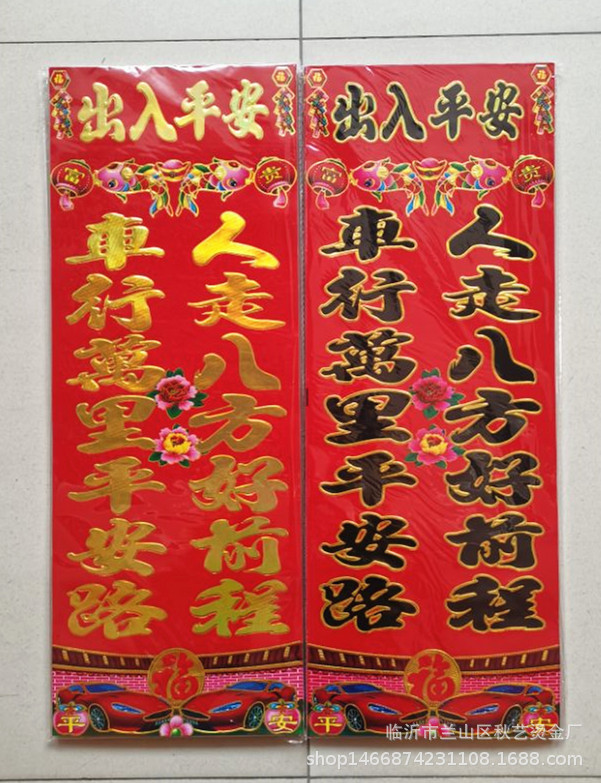 福 出入平安 福
富 贵
車行萬里平安路
人走八方好前程
福
平 安
福 出入平安 福
富 贵
車行萬里平安路
人走八方好前程
福
平 安
临沂市兰山区秋艺烫金厂
shop1466874231108.1688.com